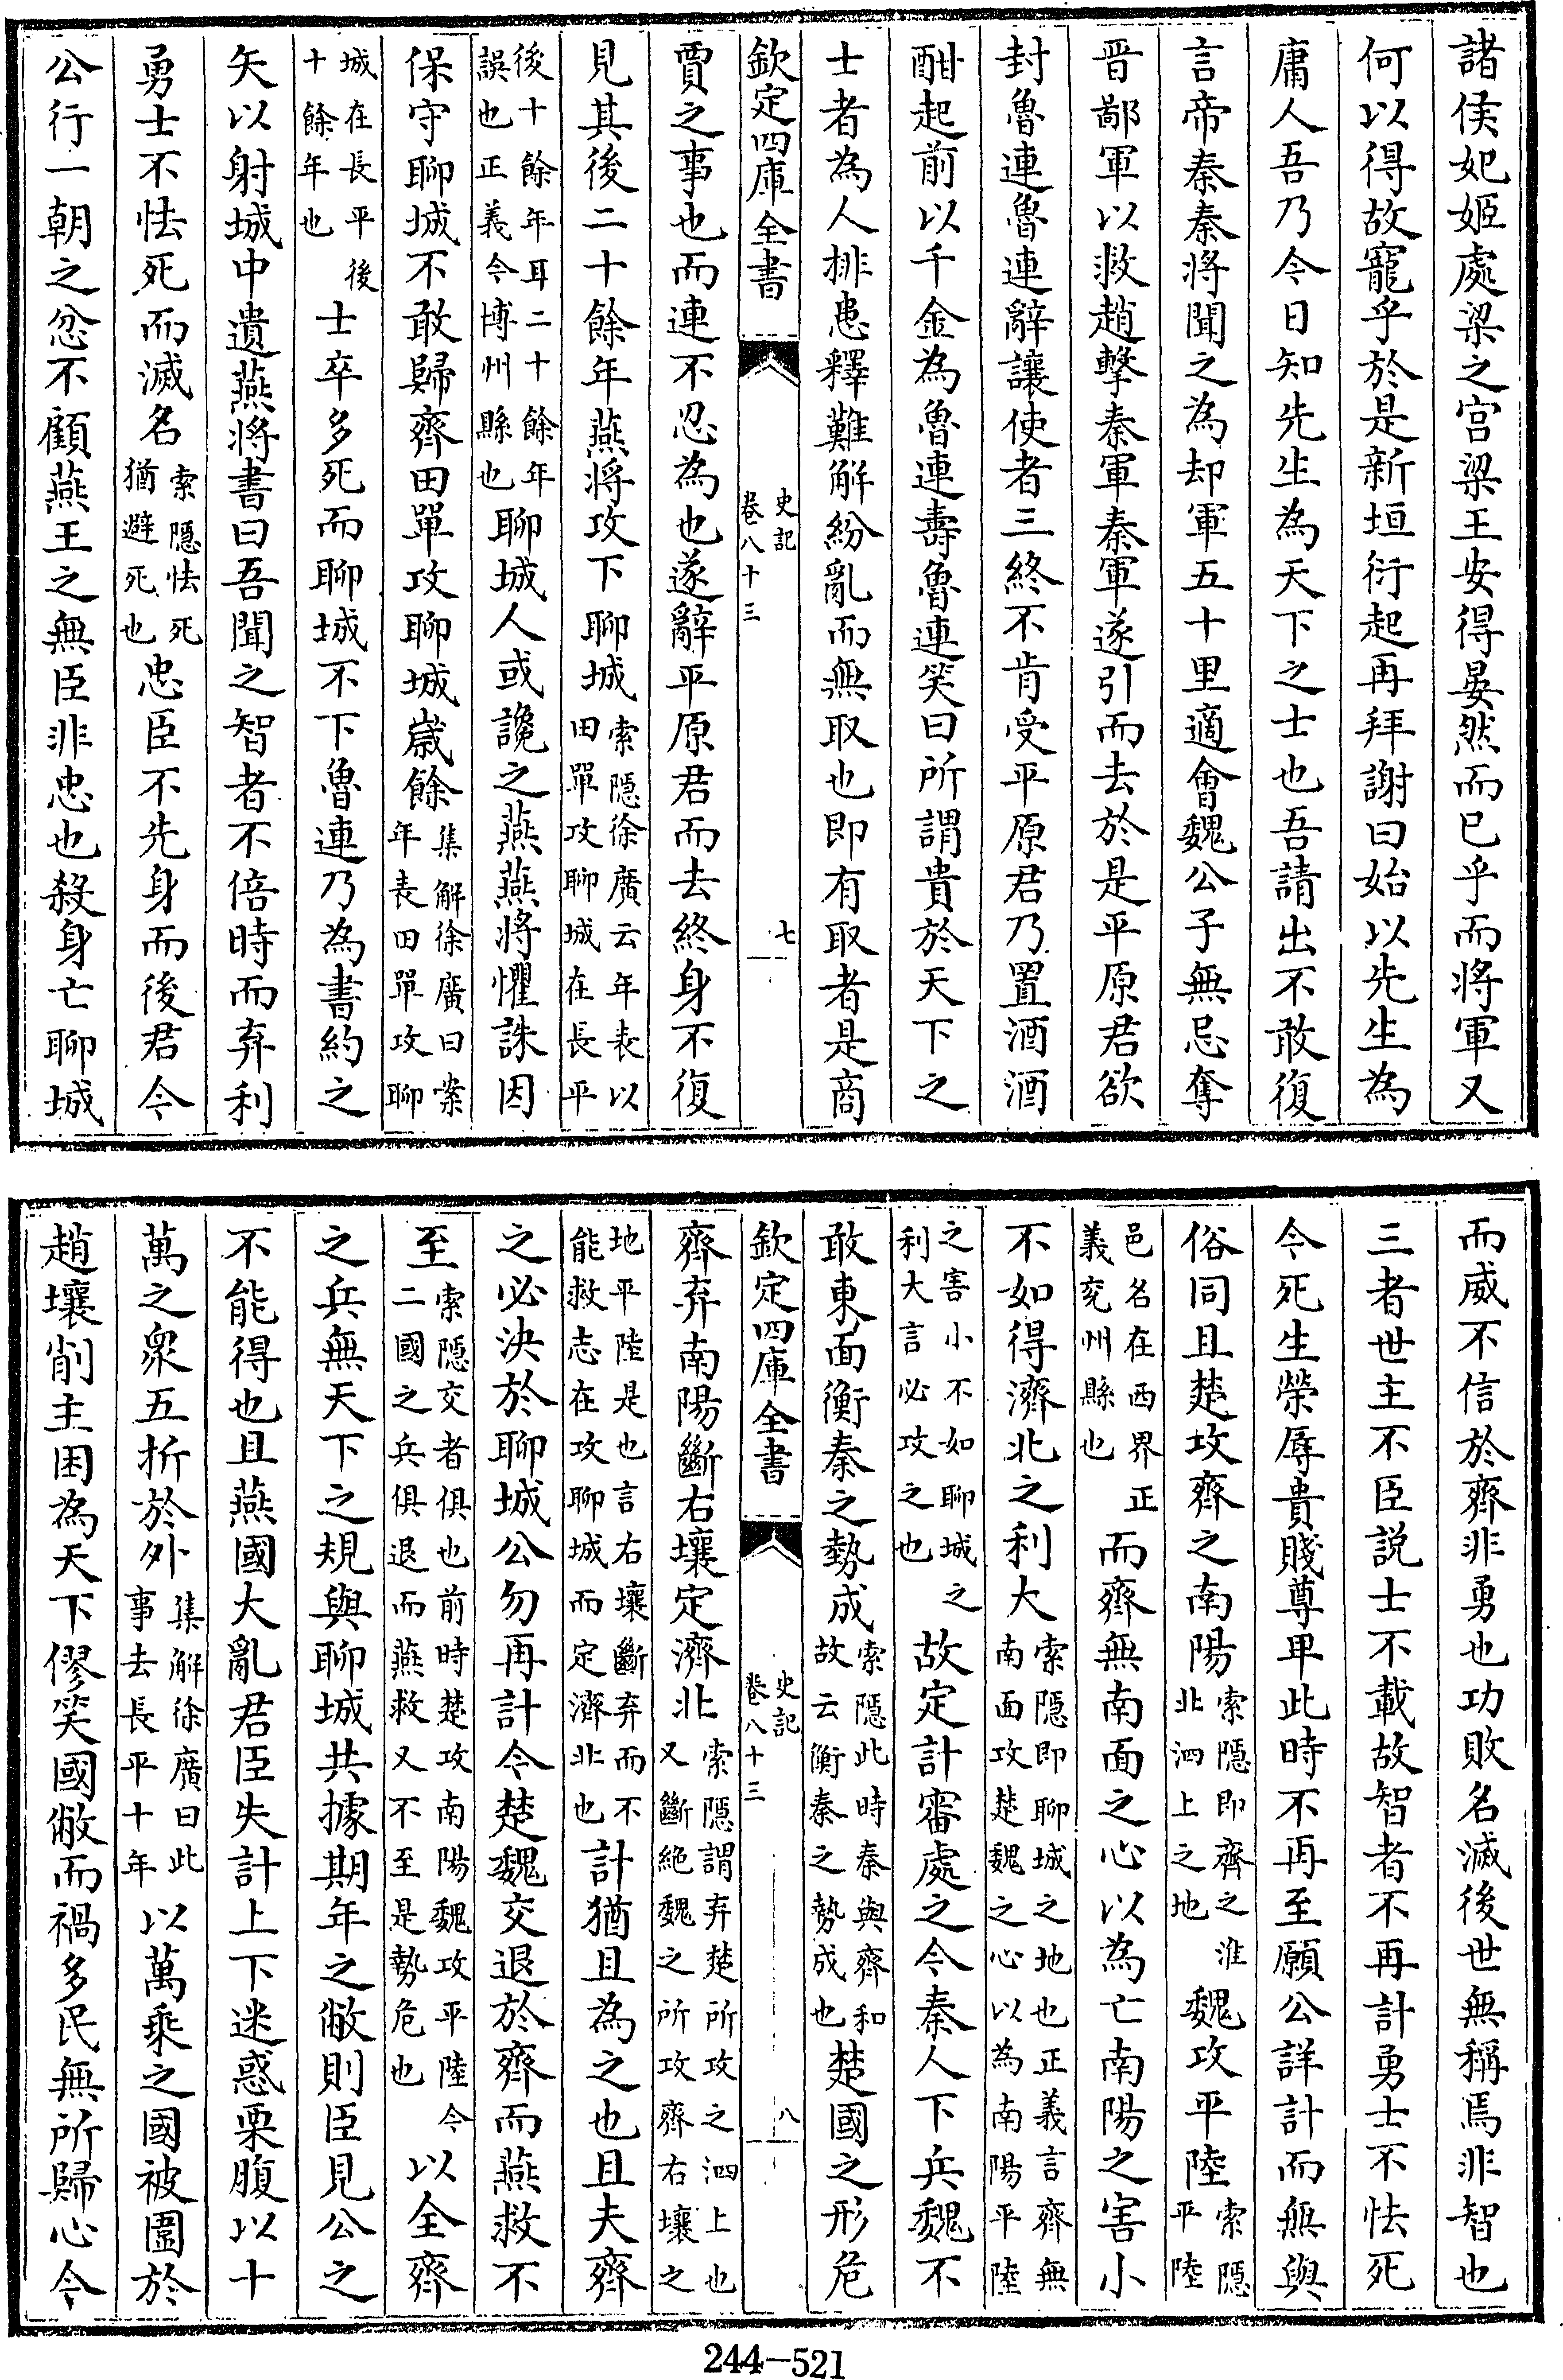 諸侯妃姬處梁之宫梁王安得晏然而已乎而將軍又
何以得故寵乎於是新垣衍起再拜謝曰始以先生為
庸人吾乃今日知先生為天下之士也吾請出不敢復
言帝秦秦將聞之為却軍五十里適會魏公子無忌奪
晉鄙軍以救趙擊秦軍秦軍遂引而去於是平原君欲
封魯連魯連辭讓使者三終不肯受平原君乃置酒酒
酣起前以千金為魯連壽魯連笑曰所謂貴於天下之
士者為人排患釋難解紛亂而無取也即有取者是商
欽定四庫全書 史記卷八十三 七
賈之事也而連不忍為也遂辭平原君而去終身不復
見其後二十餘年燕將攻下聊城索隱徐廣云年表以田單攻聊城在長平
後十餘年耳二十餘年誤也正義今博州縣也聊城人或讒之燕燕將懼誅因
保守聊城不敢歸齊田單攻聊城嵗餘集解徐廣曰案年表田單攻聊
城在長平後十餘年也士卒多死而聊城不下魯連乃為書約之
矢以射城中遺燕將書曰吾聞之智者不倍時而弃利
勇士不怯死而滅名索隱怯死猶避死也忠臣不先身而後君今
公行一朝之忿不顧燕王之無臣非忠也殺身亡聊城
而威不信於齊非勇也功敗名滅後世無稱焉非智也
三者世主不臣説士不載故智者不再計勇士不怯死
今死生榮辱貴賤尊卑此時不再至願公詳計而無與
俗同且楚攻齊之南陽索隱即齊之淮北泗上之地魏攻平陸索隱平陸
邑名在西界正義兖州縣也而齊無南面之心以為亡南陽之害小
不如得濟北之利大索隱即聊城之地也正義言齊無南面攻楚魏之心以為南陽平陸
之害小不如聊城之利大言必攻之也故定計審處之今秦人下兵魏不
敢東面衡秦之勢成索隱此時秦與齊和故云衡秦之勢成也楚國之形危
欽定四庫全書 史記卷八十三 八
齊弃南陽斷右壤定濟北索隱謂弃楚所攻之泗上也又斷絶魏之所攻齊右壤之
地平陸是也言右壤斷弃而不能救志在攻聊城而定濟北也計猶且為之也且夫齊
之必決於聊城公勿再計今楚魏交退於齊而燕救不
至索隱交者俱也前時楚攻南陽魏攻平陸今二國之兵俱退而燕救又不至是勢危也以全齊
之兵無天下之規與聊城共據期年之敝則臣見公之
不能得也且燕國大亂君臣失計上下迷惑栗腹以十
萬之衆五折於外集解徐廣曰此事去長平十年以萬乘之國被圍於
趙壤削主困為天下僇笑國敝而禍多民無所歸心今
244-521